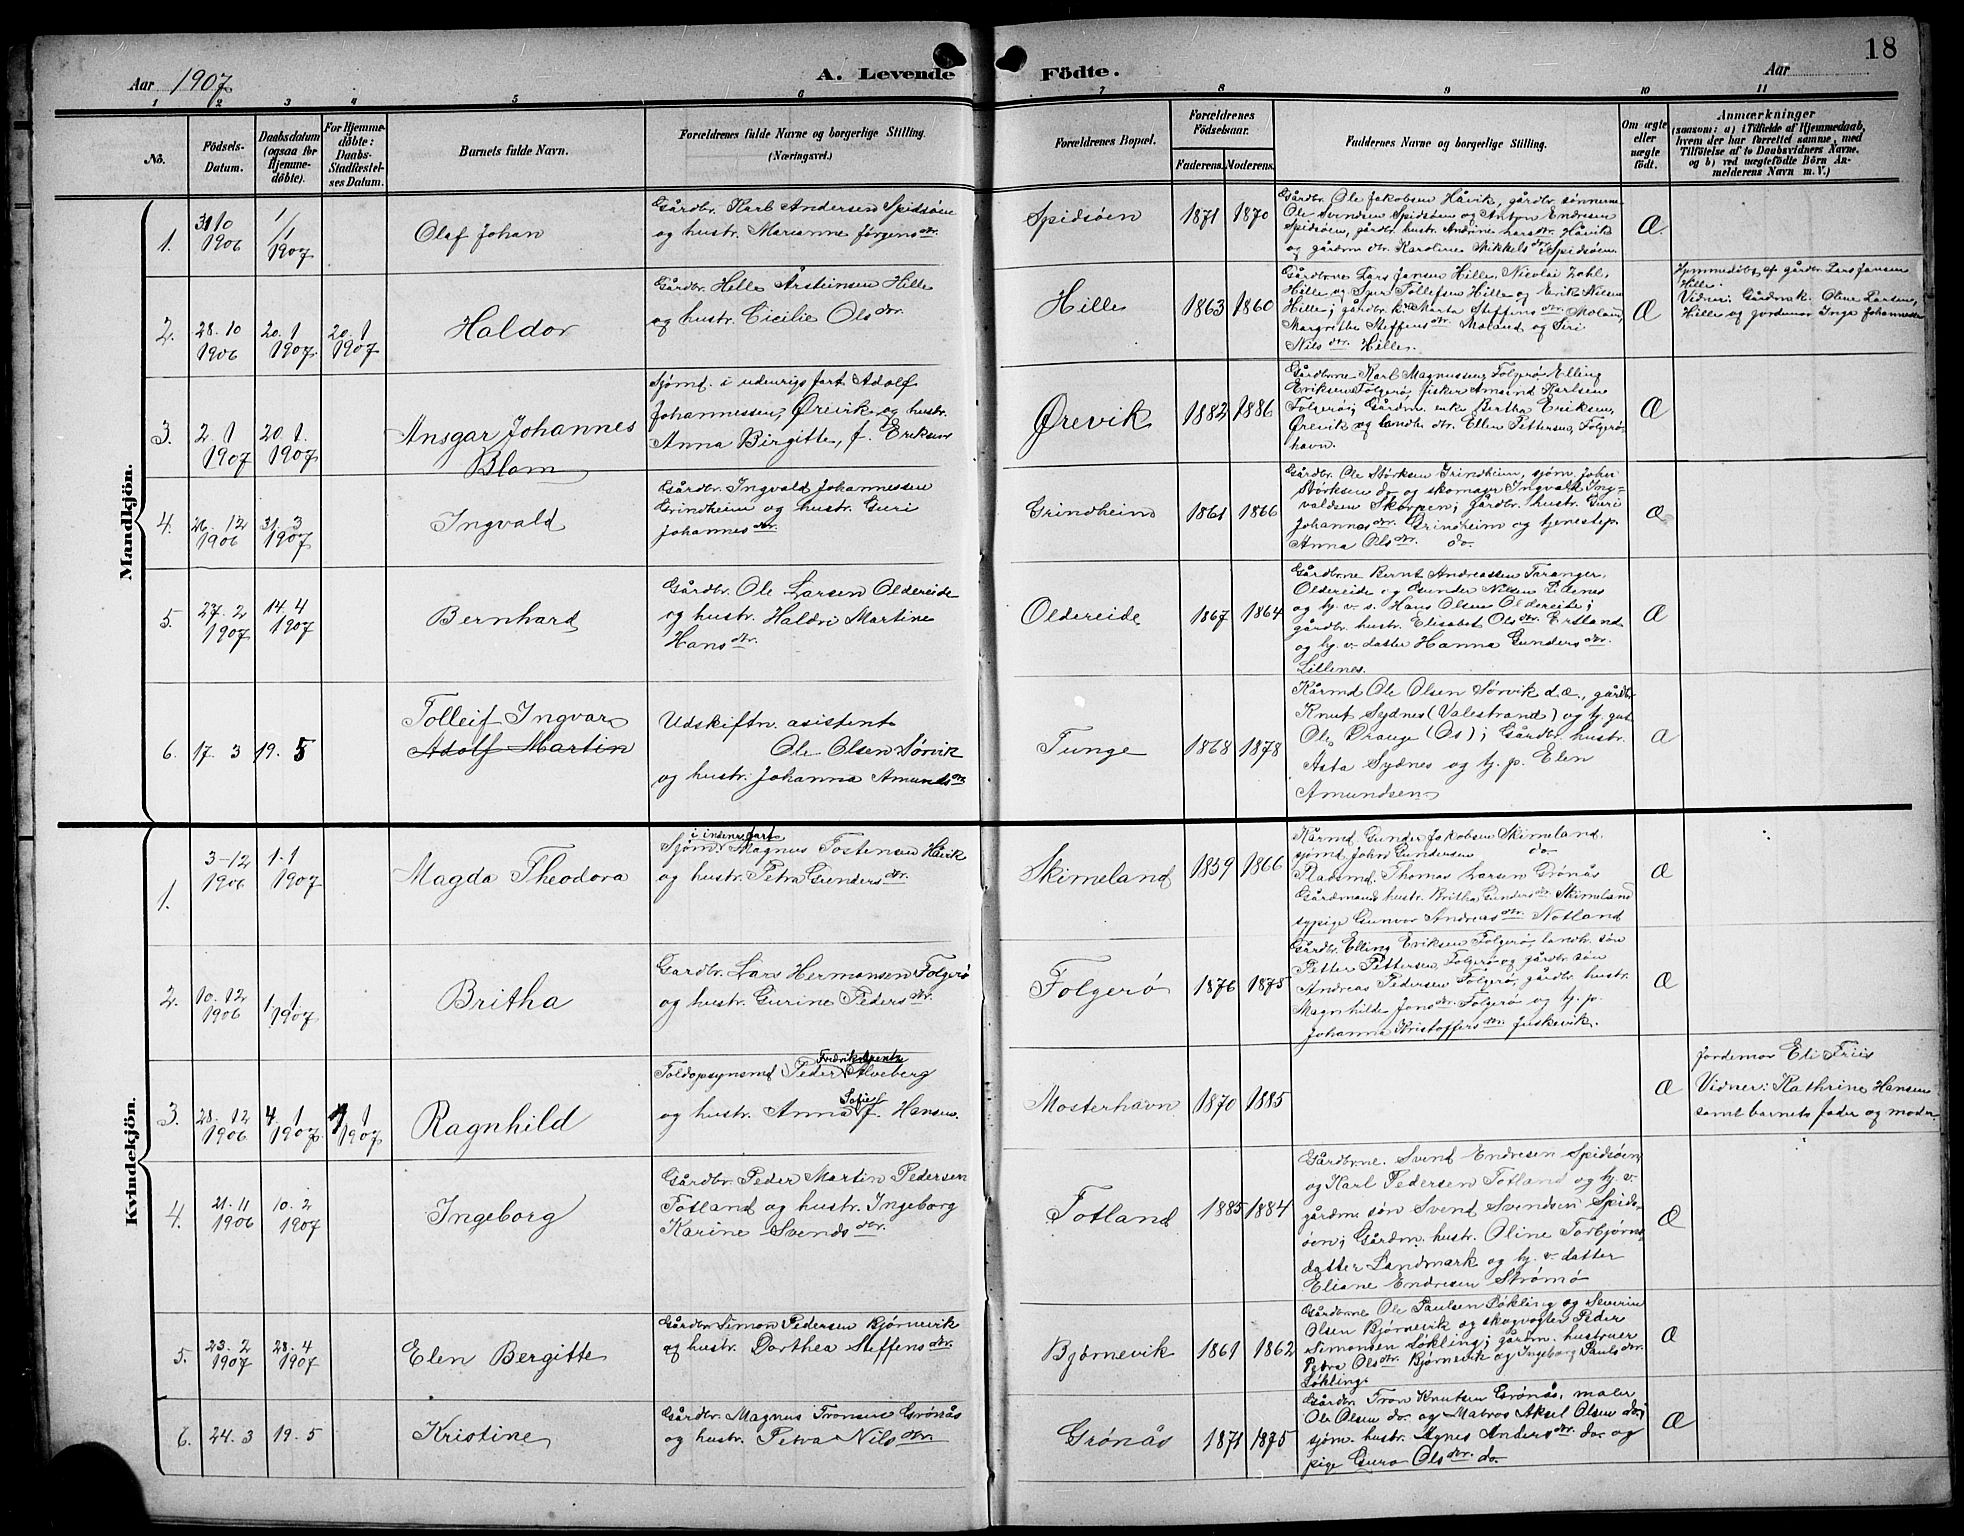 18
Aar 1907
A. Levende Födte.
Aar
1 2 3 4 5 6 7 8 9 10 11
No.
Födsels-
Datum.
Daabsdatum
(ogsaa for
Hjemme-
döbte).
For Hjemme-
döbte:
Daabs-
Stadfæstel-
ses Datum.
Barnets fulde Navn.
Forældrenes fulde Navne og borgerlige Stilling.
(Næringsvei.)
Forældrenes Bopæl.
Forældrenes
Födselsaar.
Faderens. Moderens.
Faddernes Navne og borgerlige Stilling.
Om ægte
eller
uægte
födt.
Anmærkninger
(saasom: a) i Tilfælde af Hjemmedaab,
hvem der har forrettet samme, med
Tilföielse af to Daabsvidners Navne,
og b) ved uægtefödte Börn An-
melderens Navn m. V.)
Mandkjön.
1.
31 10
1906
1/1
1907
Olaf Johan
Gårdbr. Karl Andersen Spidsøen
og hustr. Marianne Jørgensdtr.
Spidsøen
1871 1870
Gårdbr. Ole Jakobsen Håvik, gårdbr. sønnerne
Ole Svendsen Spidsøen og Anton Endresen
Spidsøen, gårdbr. hustr. Andrine Larsdtr. Håvik
og gårdm. dtr. Karoline Mikkelsdtr. Spidsøen
Æ.
2.
28. 10
1906
20. 1
1907
20. 1
1907
Haldor
Gårdbr. Helle Årsteinsen Hille
og hustr. Cicilie Olsdtr.
Hille
1863 1860
Gårdbrne Lars Jansen Hille, Nicolai Zahl,
Hille og Sjur Tollefsen Hille og Erik Nilsen
Hille; gårdbr. k. Marta Steffensdtr. Moland,
Margrethe Steffensdtr. Moland og Siri
Nilsdtr. Hille.
Æ
Hjemmedøbt af gårdbr. Lars Jansen
Hille.
Vidner: Gårdmk. Oline Larsen,
Hille og jordemor Inga Johannesen
3.
2 1
1907
20. 1.
1907
Ansgar Johannes
Blom
Sjømd. i udenrigs fart Adolf
Johannessen, Ørevik og hustr.
Anna Birgitte, f. Eriksen
Ørevik
1882 1886
Gårdbrne Karl Magnussen, Folgerø Elling
Eriksen Folgerø, fisker Amund Karlsen
Folgerø; Gårdm. enke Bertha Eriksen,
Ørevik og landh. dtr. Ellen Pettersen, Folgerø-
havn.
Æ
4.
26. 12
1906
31. 3
1907
Ingvald
Gårdbr. Ingvald Johannessen
Grindheim og hustr. Guri
Johannesdtr.
Grindheim
1861 1866
Gårdbr. Ole Størksen Grindheim, sjøm. Johen
Størksen do. og skomager Ingvald Ing-
valdsen Skorpen; gårdbr. hustr. Guri
Johannesdtr. Grindheim og tjenestep.
Anna Olsdtr. do.
Æ
5.
27. 2
1907
14. 4
1907
Bernhard
Gårdbr. Ole Larsen Oldereide
og hustr. Haldri Martine
Hansdtr.
Oldereide
1867 1864
Gårdbrne Bernt Andreassen Taranger,
Oldereide og Gunder Nilsen Eidenes
og hj. v. s. Hans Olsen Oldereide;
gårdbr. hustr. Elisabet Olsdtr. Ertland
og hj. v. datter Hanna Gundersdtr.
Lillenes.
Æ
6.
17. 3
19. 5
Tolleif Ingvar
Adolf Martin
Udskiftn. asistent
Ole Olsen Sørvik
og hustr. Johanna Amundsdtr.
Tunge
1868 1878
Kårmd Ole Olsen Sørvik d.æ., gårdbr.
Knut Sydnes (Valestrand) og hj. gut
Ole Drange (Os); Gårdbr. hustr.
Asta Sydnes og hj. p. Elen
Amundsen
Æ
Kvindekjön.
1.
3-12
1906
1. 1
1907
Magda Theodora
i indenr. fart
Sjømd. Magnus Tostensen Håvik
og hustr. Petra Gundersdtr.
Skimeland
1859 1866
Kårmd Gunder Jakobsen Skimeland,
sjømd. John Gundersen do
Pladsmd. Thomas Larsen Grönås
Gårdmands hustr. Britha Gundersdtr. Skimeland
sypige Gunvor Andreasdtr. Notland
Æ
2.
10. 12
1906
1 1
1907
Britha
Gardbr. Lars Hermansen Folgerø
og hustr. Gurine Pedersdtr.
Folgerø
1876 1875
Gårdbr. Elling Eriksen Folgerø, landh. søn
Petter Pettersen, Folgerø og gårdbr. søn
Andreas Pedersen Folgerø, gårdbr. hustr.
Magnhilde Jonsdtr. Folgerø og hj. p.
Johanna Kristoffersdtr. Juskevik.
Æ
3.
28. 12
1906
4. 1
1907
1
1907
Ragnhild
Toldopsynsmd Peder Fredrik Alveberg
og hustr. Anna Sofie f. Hansen.
Mosterhavn
1870 1885
Æ
Jordemor Eli Friis
Vidner: Kathrine Hansen
samt barnets fader og moder
4.
21. 11
1906
10. 2
1907
Ingeborg
Gårdbr. Peder Martin Pedersen
Totland og hustr. Ingeborg
Karine Svendsdtr.
Totland
1885 1884
Gårdbrne. Svend Endresen Spidsøen,
og Karl Pedersen Totland og hj. v.
gårdm. søn Svend Svendsen Spids-
øen; Gårdm. hustr. Oline Torbjørns-
datter Landmark og hj. v. datter
Eliane Endresen Strømø
Æ
5.
23. 2
1907
28. 4
1907
Elen Bergitte
Gårdbr. Simon Pedersen Bjørnevik
og hustr. Dorthea Steffensdtr.
Bjørnevik
1861 1862
Gårdbrne Ole Paulsen Løkling og Severin
Olsen Bjørnevik og skogvogter Peder
Simonsen Løkling; gårdm. hustruer
Petra Olsdtr. Bjørnevik og Ingeborg Paulsdtr.
Løkling.
Æ
6.
24. 3
19. 5
Kristine
Gårdbr. Magnus Tronsen Grönås
og hustr. Petra Nilsdtr.
Grönås
1871 1875
Gårdbr. Tron Knutsen Grönås, maler
Ole Olsen do. og Matros Aksel Olsen do.;
sjøm. hustr. Agnes Andersdtr. do. og
pige Guro Olsdtr. do.
Æ